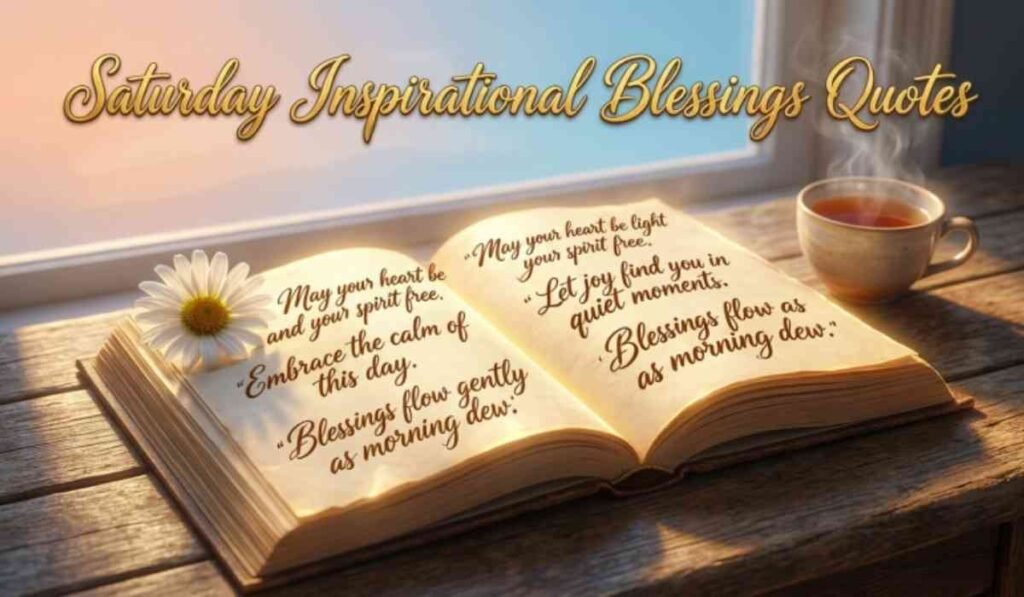 Saturday Inspirational Blessings Quotes
May your heart be
and your spirit free.
"Embrace the calm of
this day.
"Blessings flow gently
as morning dew."
"May your heart be light
your spirit free.
"Let joy find you in
quiet moments.
'Blessings flow as
as morning dew."